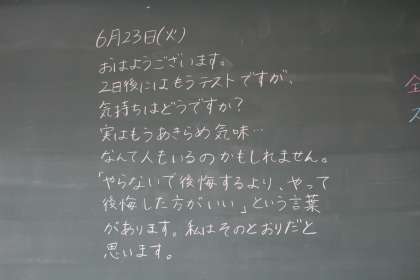 6月23日(火)
おはようございます。
2日後にはもうテストですが、
気持ちはどうですか?
実はもうあきらめ気味…
なんて人もいるのかもしれません。
「やらないで後悔するより、やって
後悔した方がいい」という言葉
があります。私はそのとおりだと
思います。
全
ス